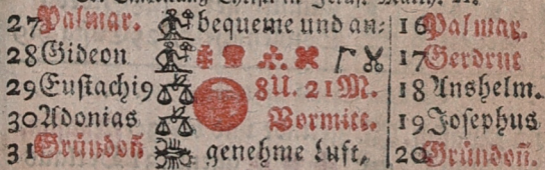 27 Palmar. bequeme und an⸗ 16 Palmar.
28 Gideon 17 Gerdrut
29 Eustachi9 8U. 21M. 18 Anshelm.
30 Adonias Vormitt. 19 Josephus
31 Gründoñ genehme Luft, 20 Gründoñ.